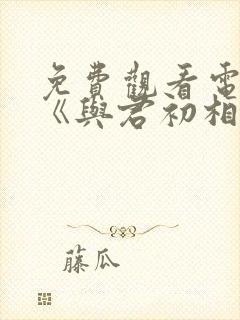 免費觀看電
《與君初相
藤瓜